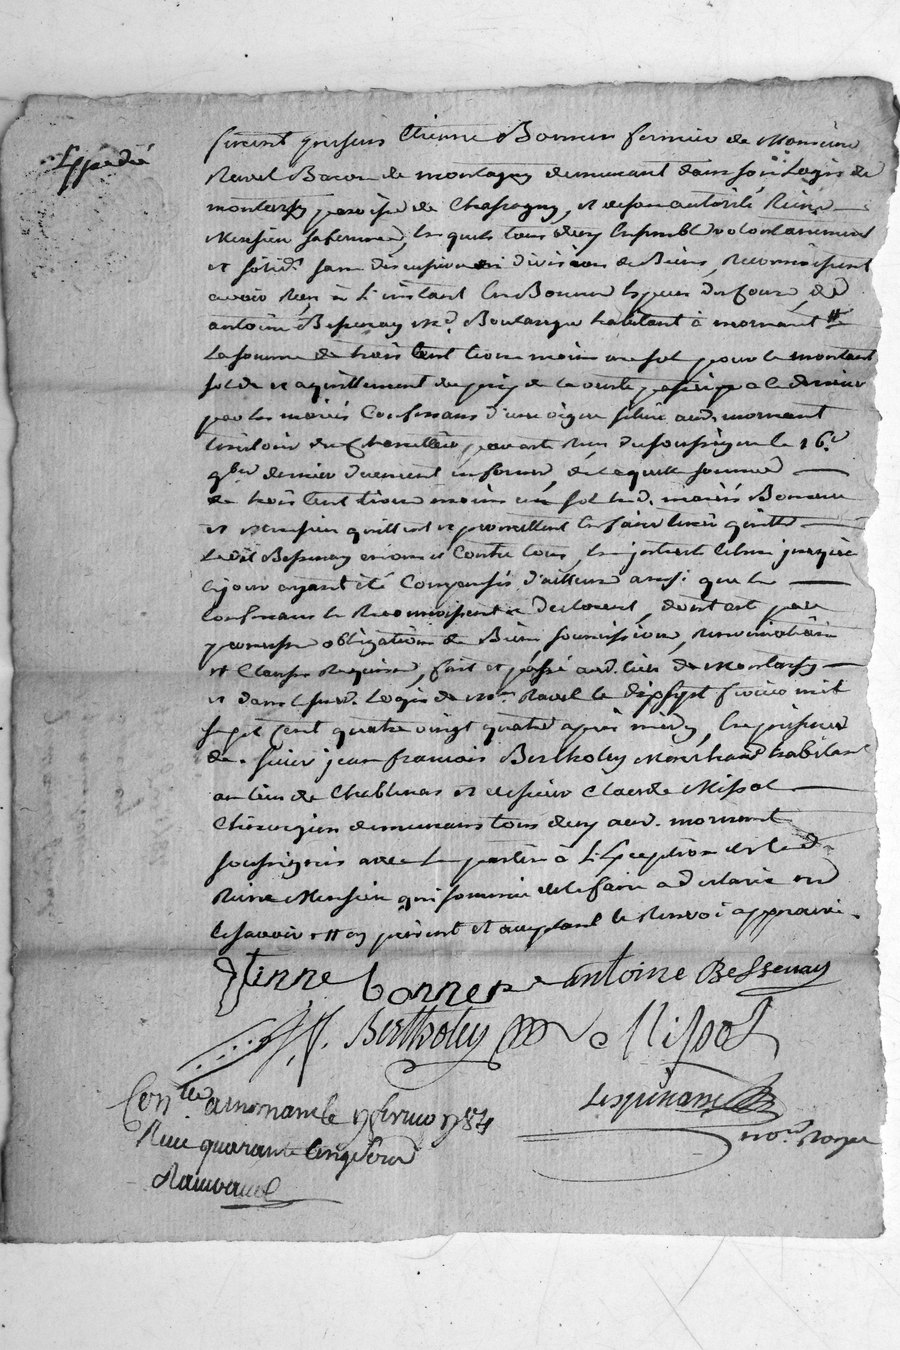 Expedié
furent presens Etienne Bonner fermier de Monsieur
Ravel Baron de montagny demeurant dans son Logis de
montarsy paroisse de Chassagny, et de son autorité Reine
Mersien sa femme, lesquels tous deux Ensemble volontairement
et solid.t sans discussion ni division de Biens, reconnoissent
avoir Reçu à L'instant En Bonnes Especes du Cours, de
antoine Bessenay M.d Boulanger habitant à mornant #
La somme de trois Cent livres moins un sol pour le montant
solde et aquittement du prix de la vente passée a ce dernier
par les mariés Confessans d'une vigne située aud. mornant
territoire du par acte Reçu du soussigné le 16.e
9bre dernier duement informé, de laquelle somme
de trois Cent livres moins un sol lesd. mariés Bonner
et Mersien quittent et promettent En faire tenir quitte
Ledit Bessenay envers et Contre tous, les interets jusqu'à
Ce jour ayant été Compensés d'ailleurs ainsi que les
Confessans le Reconnoissent et declarent, dont acte par
promesse obligation de Biens, soumission, Renonciation
et Clauses Requises, fait et passé aud. lieu de Montarsy
et dans le susd. Logis de M.r Ravel le dixsept fevrier mil
sept Cent quatre vingt quatre après midy, En presence
de sieur jean francois Bertholey Marchand habitant
au lieu de Chablenas et de sieur Claude Missol
Chirurgien demeurans tous deux aud. mornant
soussignés avec les parties à L'Exception de lad.
Reine Mersien qui sommée de le faire a declaré ne
le savoir # ey présent et acceptant le Renvoi approuvé.
Etienne bonner antoine Bessenay
J. f. Bertholey Missol
Lespinasse
no.re Royal
Con.llé a mornant le 17 fevrier 1784
Reçu quarante Cinq sous